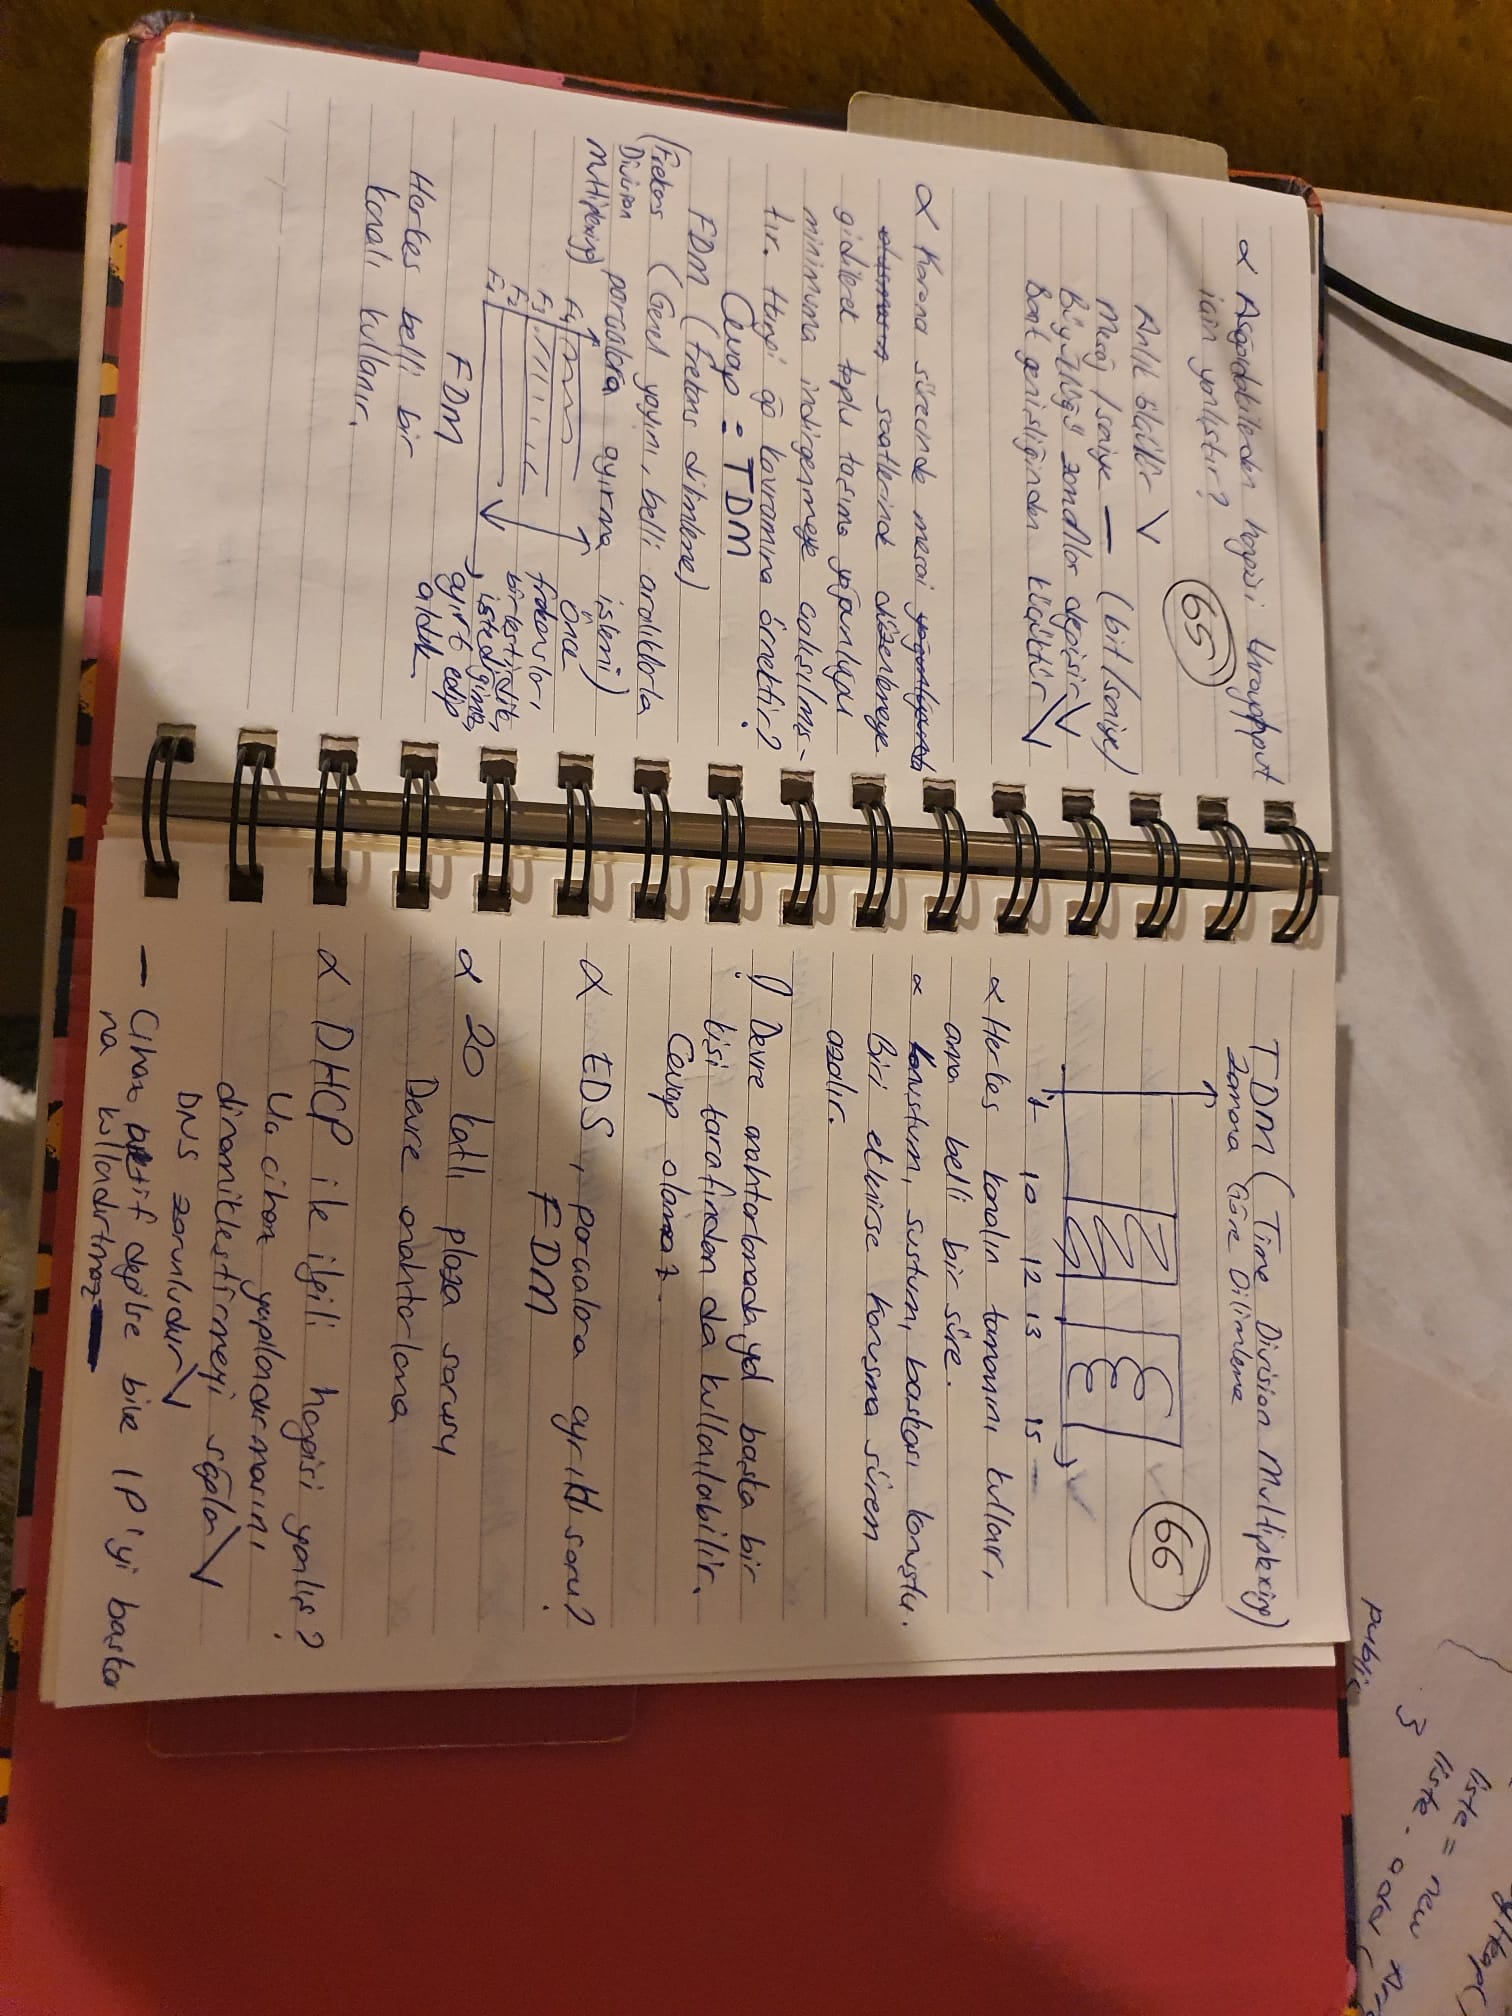 α Aşağıdakilerden hangisi throughput
için yanlıştır?
65
Anlık ölçülür √
Mesaj /saniye — (bit/saniye)
Büyüklüğü zamanla değişir √
Bant genişliğinden küçüktür √
α Korona sürecinde mesai yoğunluğunda
oluşmasın saatlerinde düzenlemeye
gidilerek toplu taşıma yoğunluğu
minimuma indirgenmeye çalışılmış-
tır. Hangi ağ kavramına örnektir?
Cevap = TDM
FDM (frekans dilimleme)
(Frekans
Division
Multiplexing)
(Genel yayını, belli aralıklarla
parçalara ayırma işlemi)
F4
F3
F2
F1
Önce
frekansları,
birleştirdik,
istediğimiz,
ayırt edip
aldık
FDM
Herkes belli bir
kanalı kullanır.
TDM (Time Division Multiplexing)
Zamana Göre Dilimleme
66
t 10 12 13 15
α Herkes kanalın tamamını kullanır,
ama belli bir süre.
α Konuştum, sustum, başkası konuştu.
Biri eklenirse konuşma süren
azalır.
! Devre anahtarlamada yol başka bir
kişi tarafından da kullanılabilir.
Cevap olamaz.
α EDS, parçalara ayrıklı soru?
FDM
α 20 katlı plaza sorusu
Devre anahtarlama
α DHCP ile ilgili hangisi yanlış?
Uç cihaz yapılandırmasını
dinamikleştirmeyi sağlar √
DNS zorunludur √
— Cihaz aktif değilse bile IP'yi başka
na kullandırtmaz
yHeap()
liste = new Arr
liste.add(
}
public